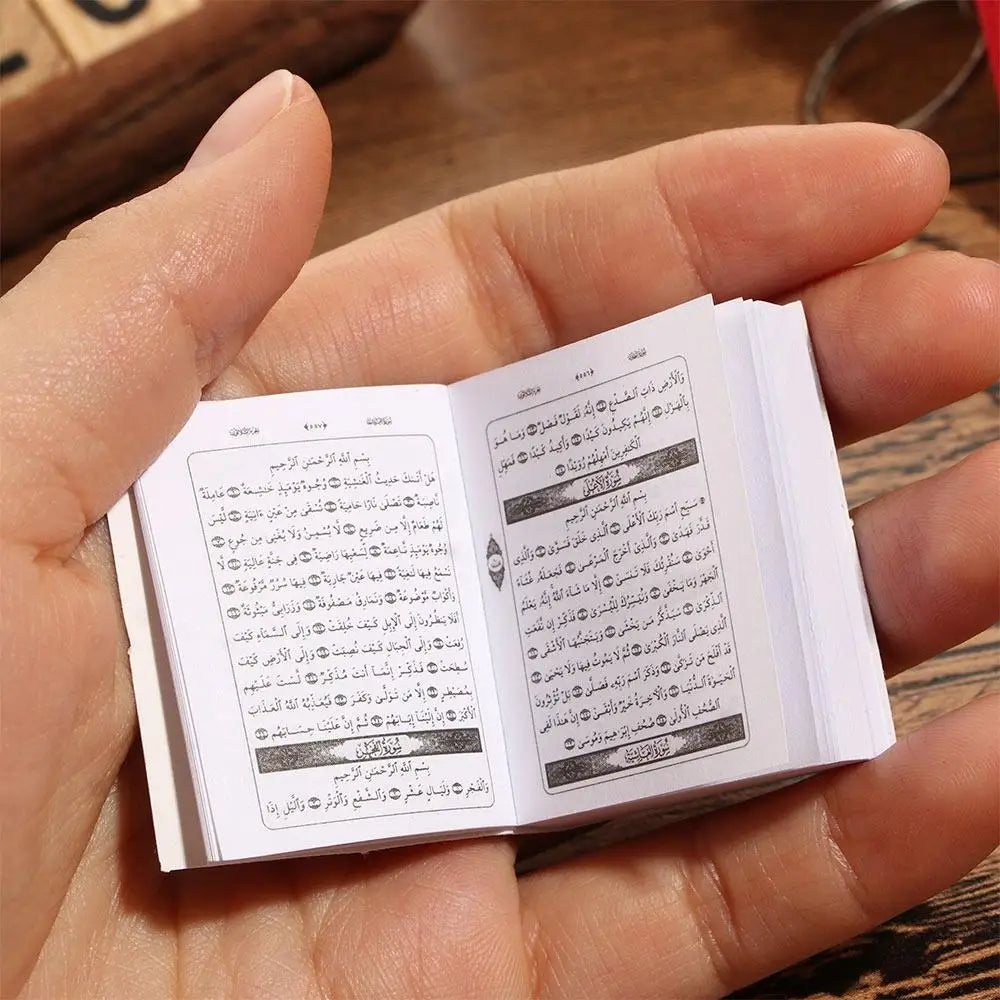 ﴿٥٥٦﴾
وَٱلْأَرْضِ ذَاتِ ٱلصَّدْعِ إِنَّهُۥ لَقَوْلٌ فَصْلٌ وَمَا هُوَ
بِٱلْهَزْلِ إِنَّهُمْ يَكِيدُونَ كَيْدًا وَأَكِيدُ كَيْدًا فَمَهِّلِ
ٱلْكَٰفِرِينَ أَمْهِلْهُمْ رُوَيْدًۢا
سُورَةُ الأَعْلَى
بِسْمِ ٱللَّهِ ٱلرَّحْمَٰنِ ٱلرَّحِيمِ
سَبِّحِ ٱسْمَ رَبِّكَ ٱلْأَعْلَى ٱلَّذِى خَلَقَ فَسَوَّىٰ وَٱلَّذِى
قَدَّرَ فَهَدَىٰ وَٱلَّذِىٓ أَخْرَجَ ٱلْمَرْعَىٰ فَجَعَلَهُۥ غُثَآءً
أَحْوَىٰ سَنُقْرِئُكَ فَلَا تَنسَىٰٓ إِلَّا مَا شَآءَ ٱللَّهُ إِنَّهُۥ يَعْلَمُ
ٱلْجَهْرَ وَمَا يَخْفَىٰ وَنُيَسِّرُكَ لِلْيُسْرَىٰ فَذَكِّرْ إِن نَّفَعَتِ
ٱلذِّكْرَىٰ سَيَذَّكَّرُ مَن يَخْشَىٰ وَيَتَجَنَّبُهَا ٱلْأَشْقَى
ٱلَّذِى يَصْلَى ٱلنَّارَ ٱلْكُبْرَىٰ ثُمَّ لَا يَمُوتُ فِيهَا وَلَا يَحْيَىٰ
قَدْ أَفْلَحَ مَن تَزَكَّىٰ وَذَكَرَ ٱسْمَ رَبِّهِۦ فَصَلَّىٰ بَلْ تُؤْثِرُونَ
ٱلْحَيَوٰةَ ٱلدُّنْيَا وَٱلْءَاخِرَةُ خَيْرٌ وَأَبْقَىٰٓ إِنَّ هَٰذَا لَفِى
ٱلصُّحُفِ ٱلْأُولَىٰ صُحُفِ إِبْرَٰهِيمَ وَمُوسَىٰ
سُورَةُ الغَاشِيَةِ
﴿٥٥٧﴾
بِسْمِ ٱللَّهِ ٱلرَّحْمَٰنِ ٱلرَّحِيمِ
هَلْ أَتَىٰكَ حَدِيثُ ٱلْغَٰشِيَةِ وُجُوهٌ يَوْمَئِذٍ خَٰشِعَةٌ عَامِلَةٌ
نَّاصِبَةٌ تَصْلَىٰ نَارًا حَامِيَةً تُسْقَىٰ مِنْ عَيْنٍ ءَانِيَةٍ لَّيْسَ
لَهُمْ طَعَامٌ إِلَّا مِن ضَرِيعٍ لَّا يُسْمِنُ وَلَا يُغْنِى مِن جُوعٍ
وُجُوهٌ يَوْمَئِذٍ نَّاعِمَةٌ لِّسَعْيِهَا رَاضِيَةٌ فِى جَنَّةٍ عَالِيَةٍ لَّا
تَسْمَعُ فِيهَا لَٰغِيَةً فِيهَا عَيْنٌ جَارِيَةٌ فِيهَا سُرُرٌ مَّرْفُوعَةٌ
وَأَكْوَابٌ مَّوْضُوعَةٌ وَنَمَارِقُ مَصْفُوفَةٌ وَزَرَابِىُّ مَبْثُوثَةٌ
أَفَلَا يَنظُرُونَ إِلَى ٱلْإِبِلِ كَيْفَ خُلِقَتْ وَإِلَى ٱلسَّمَآءِ كَيْفَ
رُفِعَتْ وَإِلَى ٱلْجِبَالِ كَيْفَ نُصِبَتْ وَإِلَى ٱلْأَرْضِ كَيْفَ
سُطِحَتْ فَذَكِّرْ إِنَّمَآ أَنتَ مُذَكِّرٌ لَّسْتَ عَلَيْهِم
بِمُصَيْطِرٍ إِلَّا مَن تَوَلَّىٰ وَكَفَرَ فَيُعَذِّبُهُ ٱللَّهُ ٱلْعَذَابَ
ٱلْأَكْبَرَ إِنَّ إِلَيْنَآ إِيَابَهُمْ ثُمَّ إِنَّ عَلَيْنَا حِسَابَهُم
سُورَةُ الفَجْرِ
بِسْمِ ٱللَّهِ ٱلرَّحْمَٰنِ ٱلرَّحِيمِ
وَٱلْفَجْرِ وَلَيَالٍ عَشْرٍ وَٱلشَّفْعِ وَٱلْوَتْرِ وَٱلَّيْلِ إِذَا